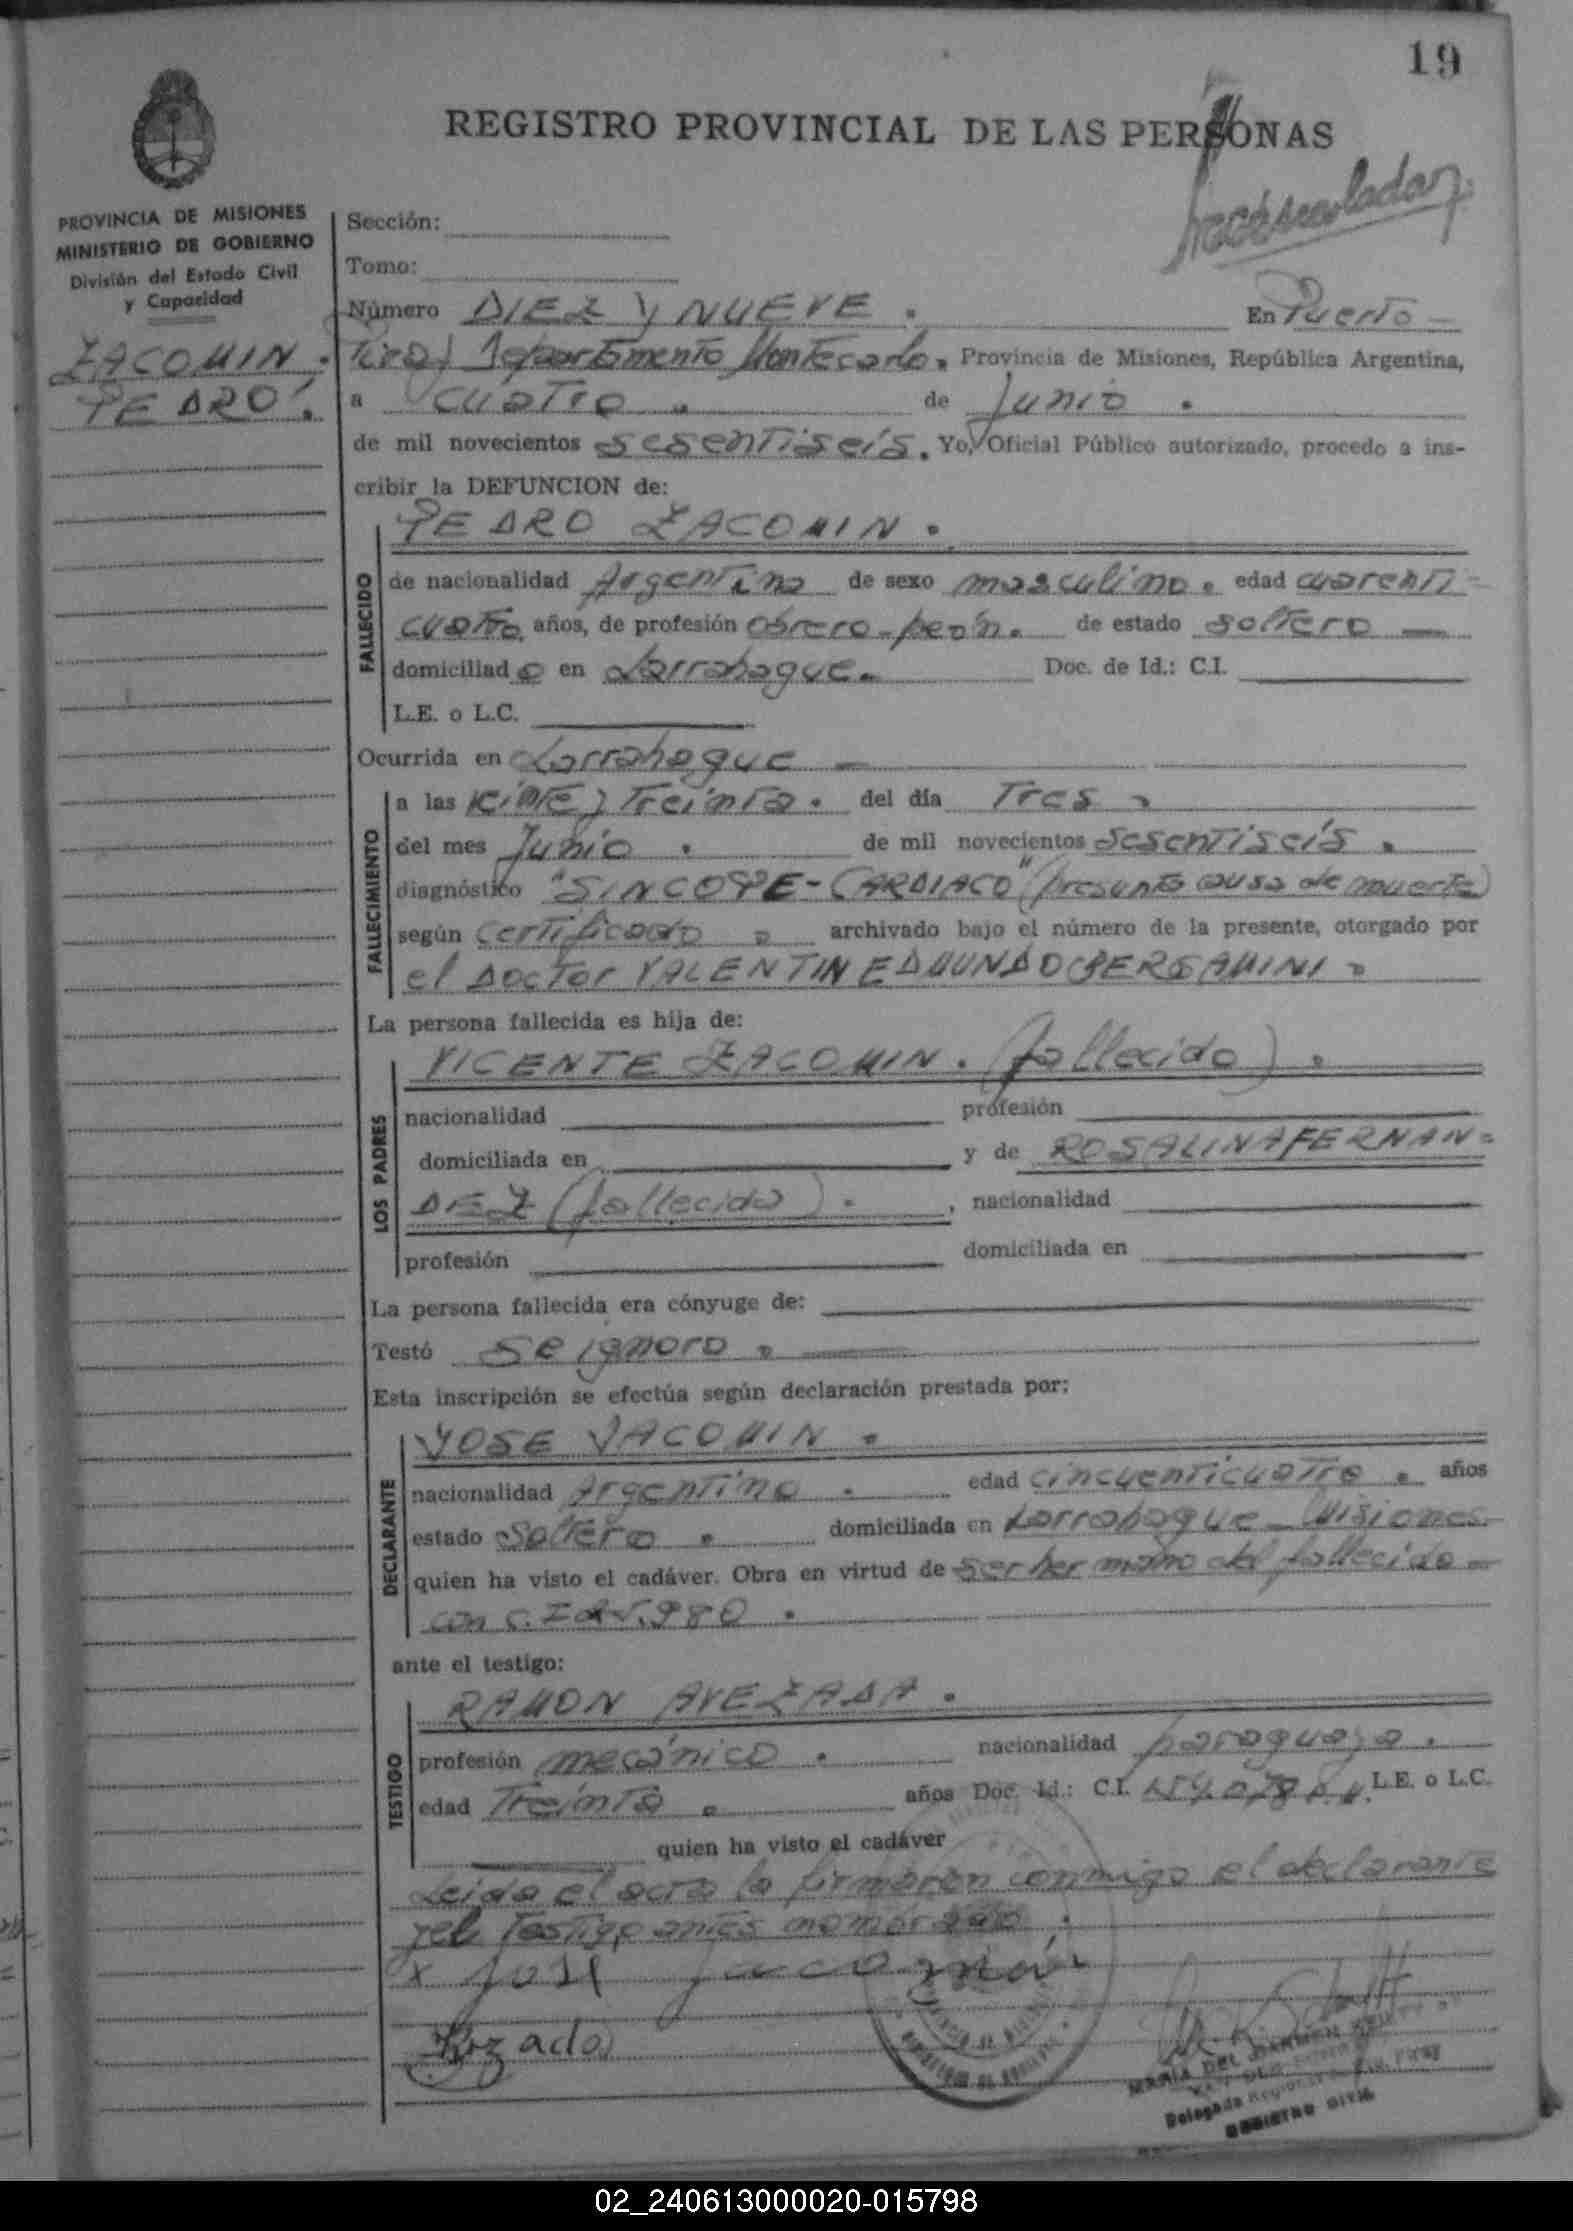 19
REGISTRO PROVINCIAL DE LAS PERSONAS
PROVINCIA DE MISIONES
MINISTERIO DE GOBIERNO
División del Estado Civil
y Capacidad
ZACOMIN.
PEDRO.
Sección:
Tomo:
Número DIEZ y NUEVE. En Puerto
Piray Departamento Montecarlo. Provincia de Misiones, República Argentina,
a cuatro. de Junio.
de mil novecientos sesentiseis. Yo, Oficial Público autorizado, procedo a ins-
cribir la DEFUNCION de:
PEDRO ZACOMIN.
FALLECIDO
de nacionalidad Argentina de sexo masculino. edad cuarenti-
cuatro años, de profesión obrero-peón. de estado soltero —
domiciliado en Larrahague. Doc. de Id.: C.I.
L.E. o L.C.
Ocurrida en Larrahague —
FALLECIMIENTO
a las y treinta. del día Tres
del mes Junio. de mil novecientos sesentiseis.
diagnóstico "SINCOPE-CARDIACO" (presunta causa de muerte)
según certificado archivado bajo el número de la presente, otorgado por
el DOCTOR VALENTIN EDMUNDO BERGAMINI.
La persona fallecida es hija de:
LOS PADRES
VICENTE ZACOMIN. (fallecido).
nacionalidad profesión
domiciliada en y de ROSALINA FERNAN-
DEZ (fallecida). , nacionalidad
profesión domiciliada en
La persona fallecida era cónyuge de:
Testó se ignora.
Esta inscripción se efectúa según declaración prestada por:
DECLARANTE
JOSE JACOMIN.
nacionalidad Argentina. edad cincuenticuatro. años
estado soltero. domiciliada en Larrahague - Misiones.
quien ha visto el cadáver. Obra en virtud de ser hermano del fallecido -
con C.I
ante el testigo:
TESTIGO
RAMON AVEZADA.
profesión mecánico. nacionalidad paraguaya.
edad Treinta. años Doc. Id.: C.I. L.E. o L.C.
quien ha visto el cadáver
Leida el acta la firmaron conmigo el declarante
y el testigo antes nombrado.
x José Jacomin
MARIA DEL CARMEN
Delegada Regional Piray
REGISTRO CIVIL
02_240613000020-015798